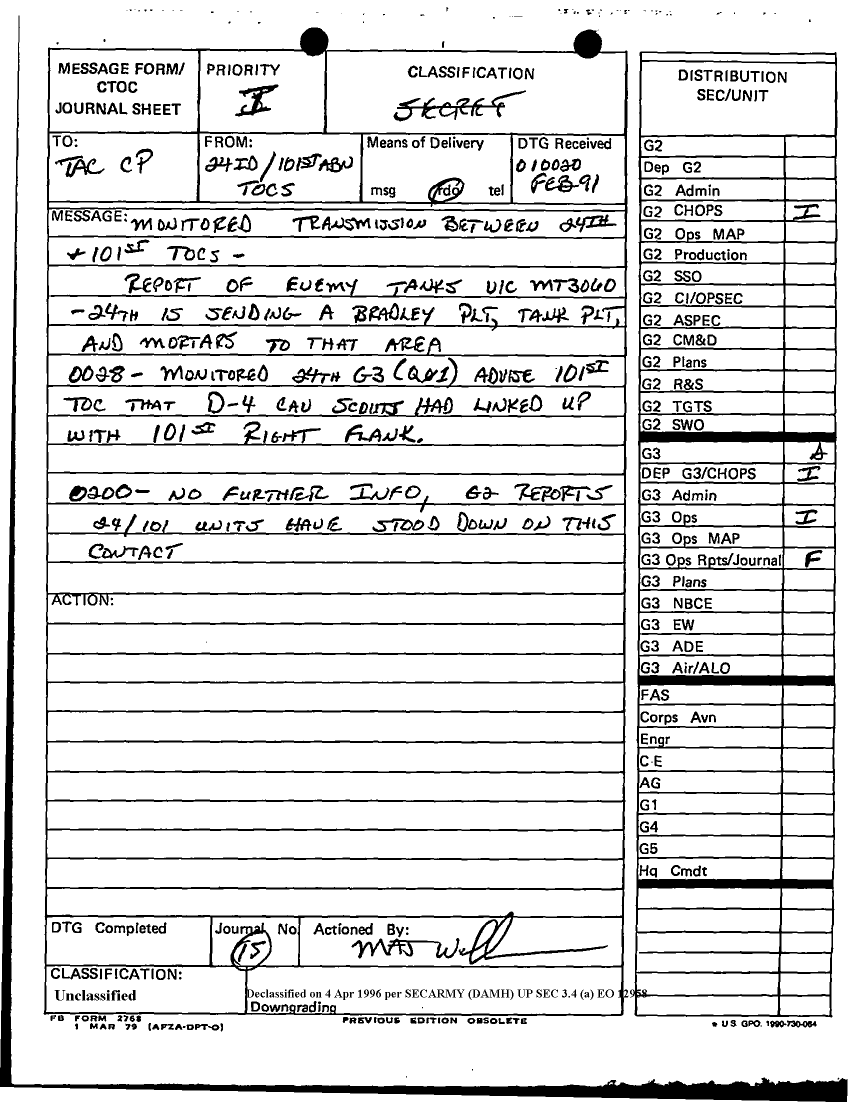 MESSAGE FORM/
CTOC
JOURNAL SHEET
PRIORITY
I
CLASSIFICATION
SECRET
TO:
TAC CP
FROM:
24ID/101ST ABN
TOCS
Means of Delivery
msg rdo tel
DTG Received
010020
FEB 91
MESSAGE: MONITORED TRANSMISSION BETWEEN 24TH
+ 101ST TOCS -
REPORT OF ENEMY TANKS VIC MT3060
- 24TH IS SENDING A BRADLEY PLT, TANK PLT,
AND MORTARS TO THAT AREA
0028 - MONITORED 24TH G3 ADVISE 101ST
TOC THAT D-4 CAV SCOUTS HAD LINKED UP
WITH 101ST RIGHT FLANK.
0200 - NO FURTHER INFO, G2 REPORTS
24/101 UNITS HAVE STOOD DOWN ON THIS
CONTACT
ACTION:
DTG Completed
Journal No.
15
Actioned By:
MAJ
CLASSIFICATION:
Unclassified
Declassified on 4 Apr 1996 per SECARMY (DAMH) UP SEC 3.4 (a) EO 12958
Downgrading
FB FORM 2768
1 MAR 79 (AFZA-DPT-O)
PREVIOUS EDITION OBSOLETE
DISTRIBUTION
SEC/UNIT
G2
Dep G2
G2 Admin
G2 CHOPS I
G2 Ops MAP
G2 Production
G2 SSO
G2 CI/OPSEC
G2 ASPEC
G2 CM&D
G2 Plans
G2 R&S
G2 TGTS
G2 SWO
G3 A
DEP G3/CHOPS I
G3 Admin
G3 Ops I
G3 Ops MAP
G3 Ops Rpts/Journal F
G3 Plans
G3 NBCE
G3 EW
G3 ADE
G3 Air/ALO
FAS
Corps Avn
Engr
C-E
AG
G1
G4
G5
Hq Cmdt
* U.S. GPO: 1990-730-064